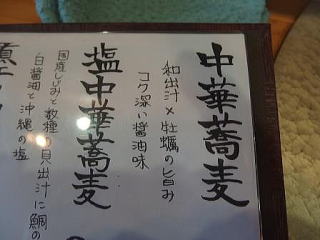 中華蕎麦
和出汁×牡蠣の旨み
コク深い醤油味
塩中華蕎麦
国産しじみと数種の貝出汁に鯛の
白醤油と沖縄の塩